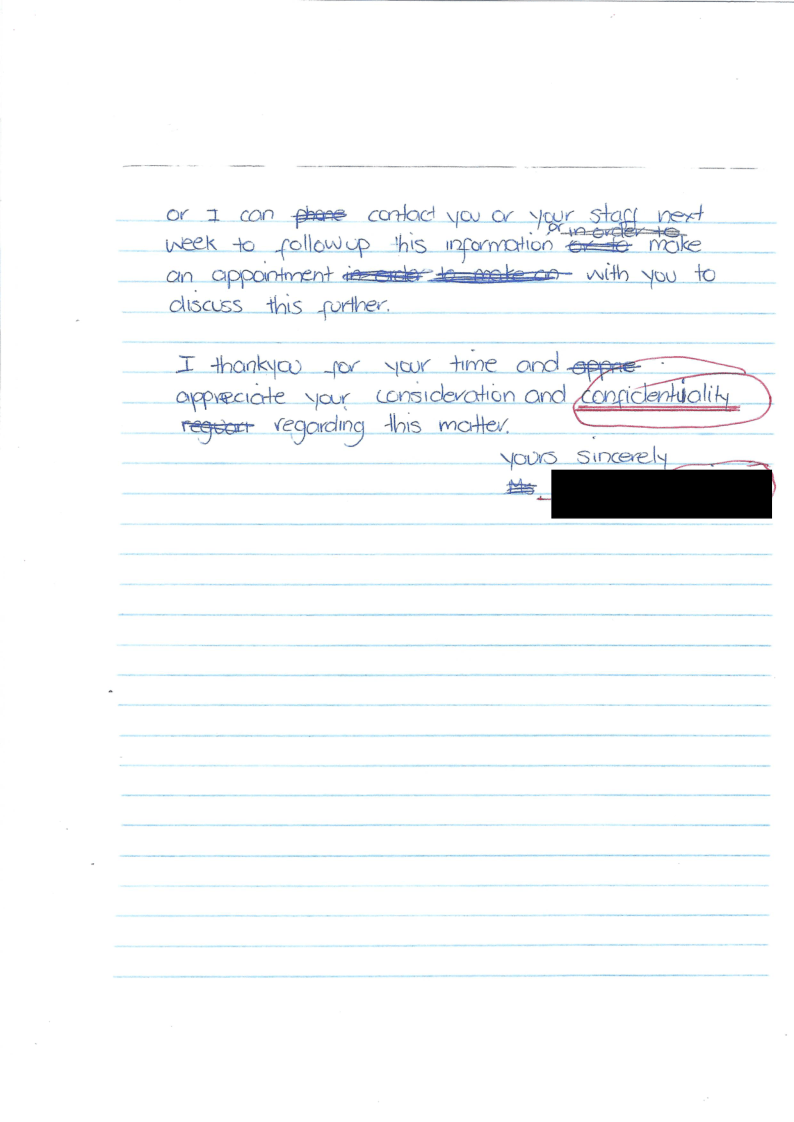 or I can phone contact you or your staff next
or in order to
week to followup this information or to make
an appointment in order to make an with you to
discuss this further.
I thankyou for your time and appre
appreciate your consideration and confidentuality
reguart regarding this matter.
yours sincerely
Ms